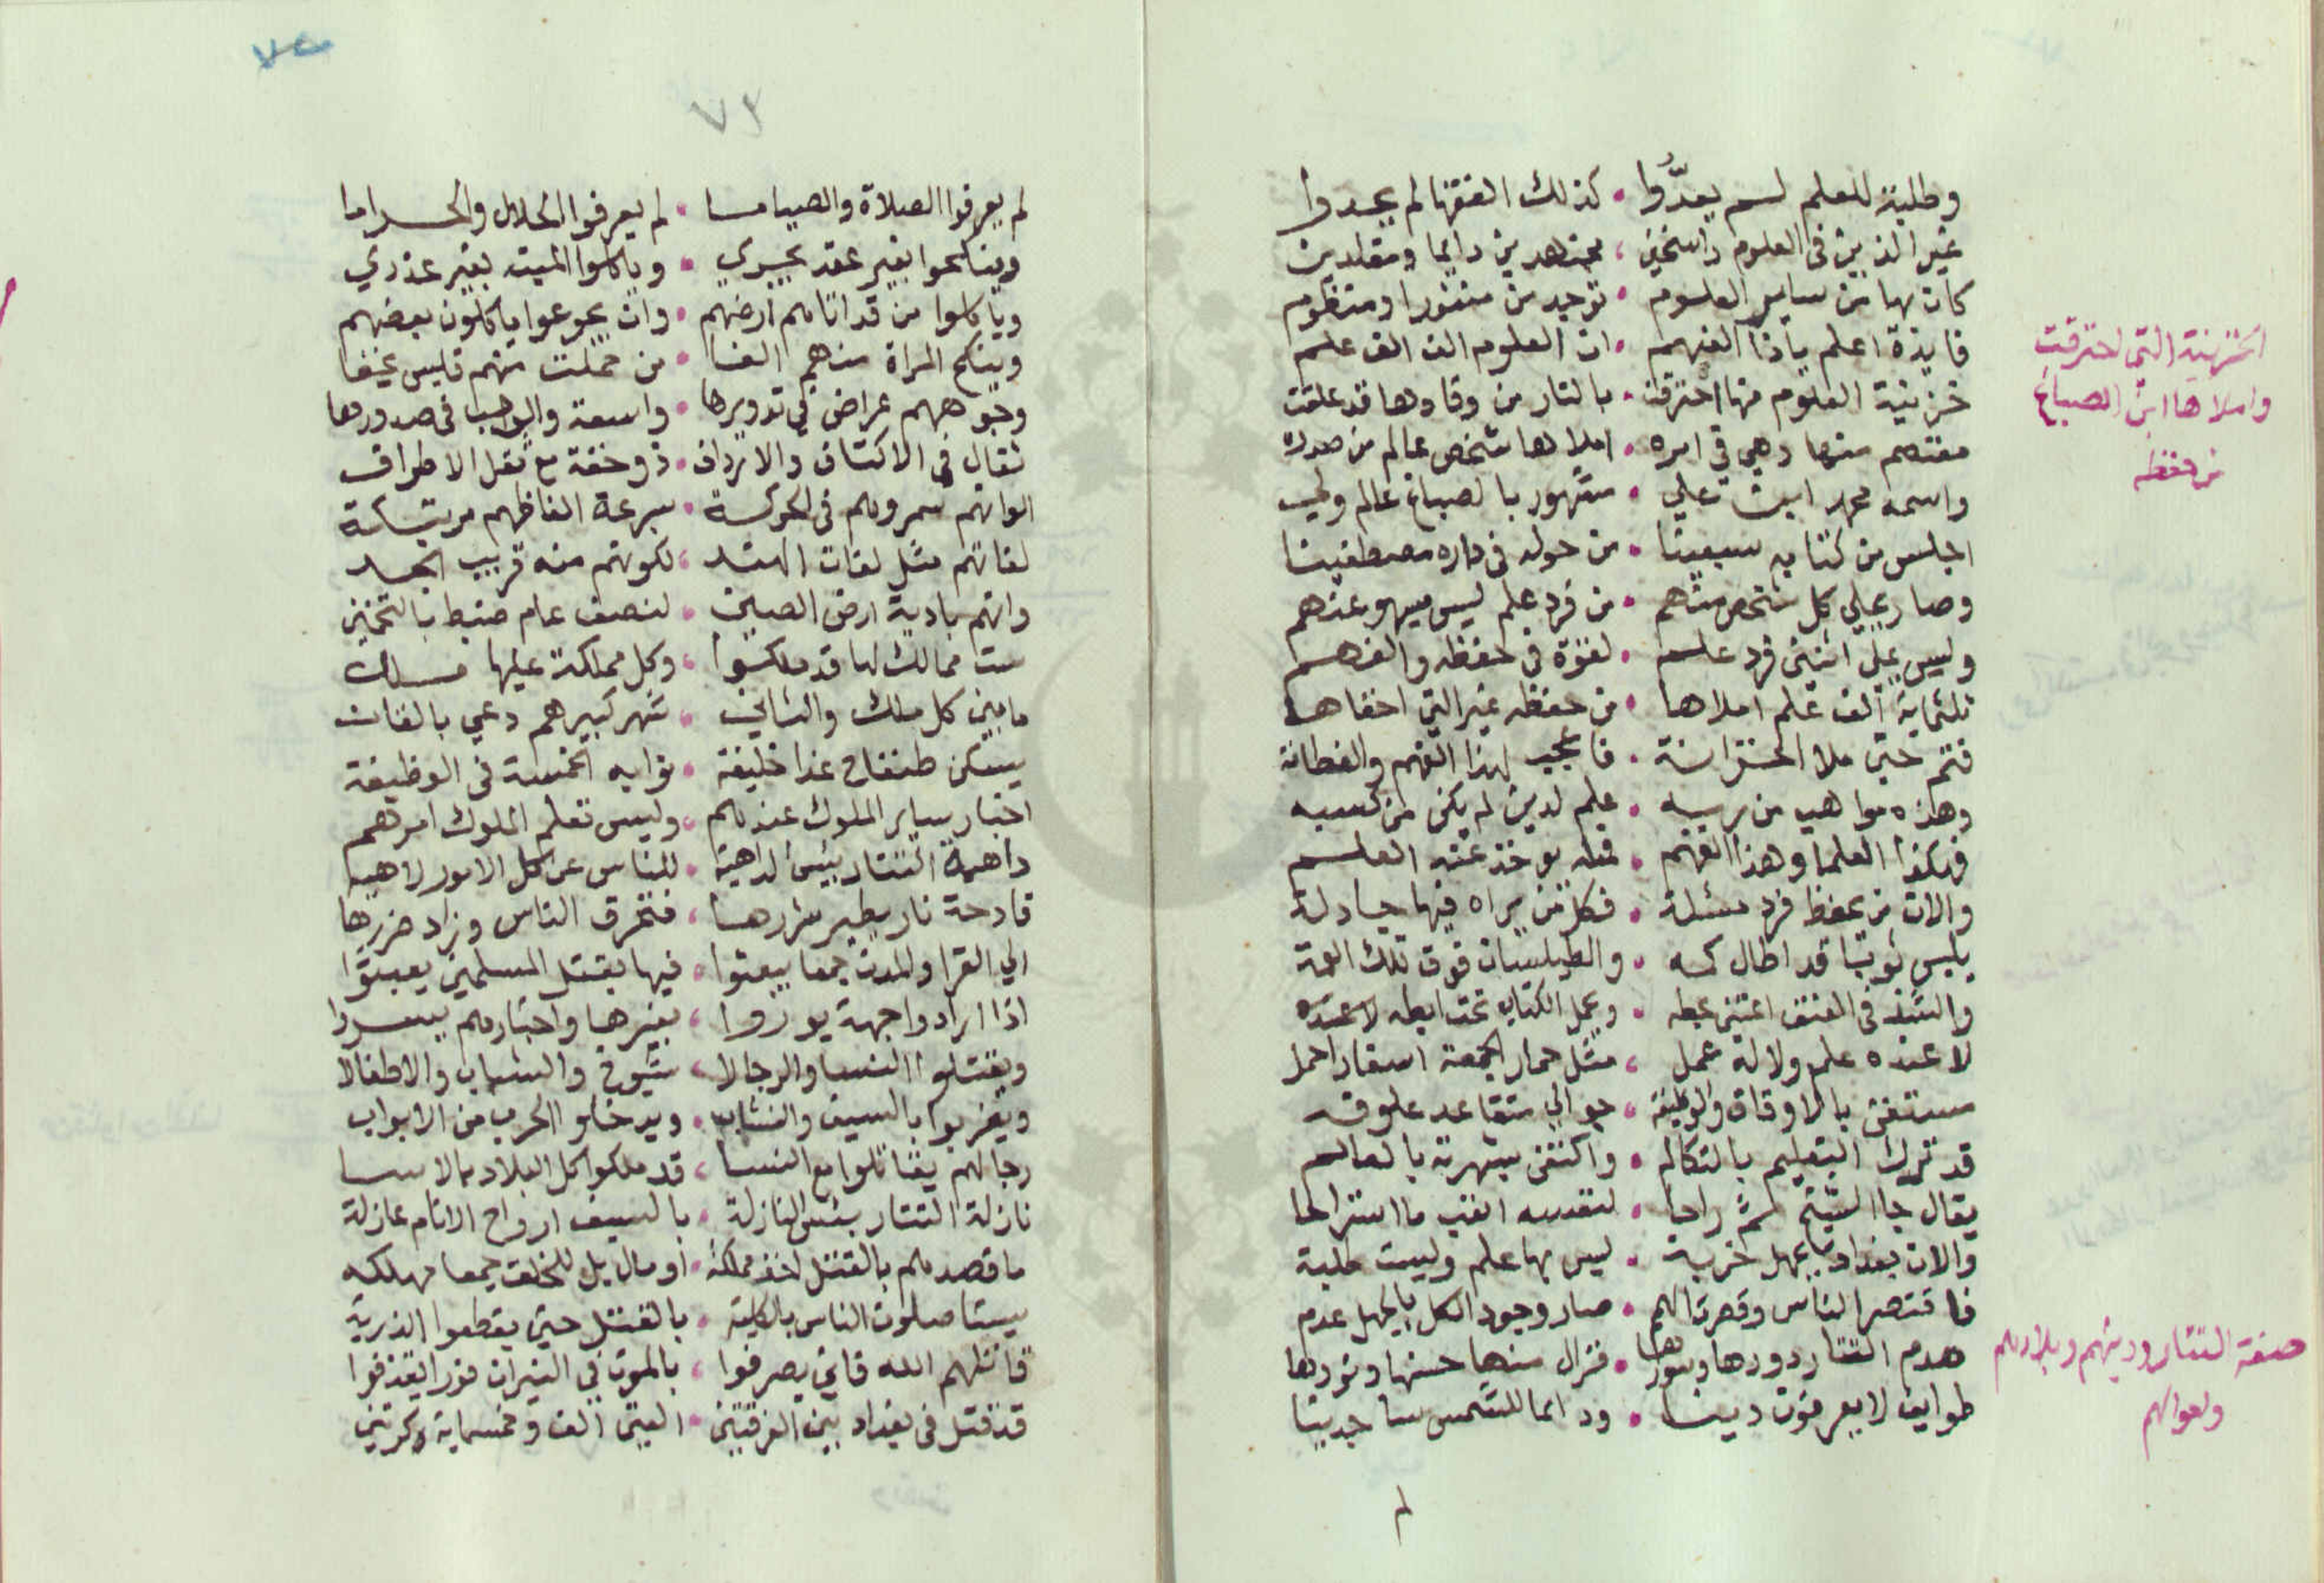 وطلبة للعلم لم يعدُّوا • كذلك الفقها لم يحدوا
غير الذين في العلوم راسخين • مجتهدين دايما ومقلدين
كان بها من ساير العلوم • توجد من منثورا ومنظوم
فايدة اعلم ياذا الفهم • ان العلوم الف الف علم
خزينة العلوم منها احترقت • بالنار من وقادها قد علقت
منها وهي في امره • املاها شخص عالم من صدره
واسمه محمد ابن علي • مشهور بالصباغ عالم ولي
اجلس من كتابه سبعينا • من حوله في داره مصطفينا
وصار يملي كل شخص منهم • من فرد علم ليس عنهم
وليس يملي اثنين فرد علم • لقوة في حفظه والفهم
ثلثماية الف علم املاها • من حفظه غير التي اخفاها
فتم حتى ملا الخزانة • فاعجب لهذا الفهم والفطانة
وهذه مواهب من ربه • علم لدن لم يكن من كسبه
فهكذا العلما وهذا الفهم • يوخذ عنه العلم
والان من يحفظ فرد مسئلة • فكل من يراه فيها جادله
يلبس ثوبا قد اطال كمه • والطيلسان فوق تلك العمة
وحمل الكتاب تحت ابطه
لا عنده علم ولا له عمل • مثل حمار الجمعة اسفارا حمل
بالاوقاف والوظيفة •
قد ترك التعليم بالتكالم • واكتفى بشهرته بالعالم
يقال جا الشيخ ثم راحا • لنفسه اتعب ما استراحا
والان بغداد بجهل خربة • ليس بها علم وليست طلبة
الناس وقصرت الهمم • صار وجود الكل بالجهل عدم
هدم التتار دورها وسورها • فزال منها حسنها ونورها
طوايف لا يعرفون دينا • ودايما للشمس ساجدينا
لم
الخزينة التي احترقت
واملاها ابن الصباغ
من حفظه
صفة التتار ودينهم وبلادهم
واحوالهم
٧٢
لم يعرفوا الصلاة والصياما • لم يعرفوا الحلال والحراما
ويناكحوا بغير عقد يجري • وياكلوا الميت بغير عذري
وياكلوا من قد اتاهم ارضهم • وان يجوعوا ياكلون بعضهم
وينكح المراة منهم الفا • من حملت منهم فليس يخفا
وجوههم عراض في تدويرها • واسعة في صدورها
ثقال في الاكتاف والارداف • ذو خفة مع ثقل الاطراف
الوانهم سمر وهم في الحركة • سرعة الفاظهم مرتبكة
لغاتهم مثل لغات الهند • لكونهم منه قريب الحد
وانهم بادية ارض الصين • لنصف عام ضبط بالتخمين
ست ممالك لها قد ملكوا • وكل مملكة عليها ملك
ما بين كل ملك والثاني • شهر كبيرهم دعي بالقان
يسكن طمغاج غدا خليفة • نوابه الخمسة في الوظيفة
اخبار ساير الملوك عندهم • وليس تعلم الملوك امرهم
داهمة التتار بئس الداهية • للناس عن كل الامور لاهية
قادحة نار يطير شررها • فتحرق الناس وزاد ضررها
الى القرا والمدن جمعا يبعثوا • فيها بقتل المسلمين يعبثوا
اذا ارادوا جهة يوروا • بغيرها واخبارهم يسروا
ويقتلوا النسا والرجالا • شيوخ والشباب والاطفالا
ويضربوا بالسيف والنشاب • ويدخلوا الحرب من الابواب
رجالهم يقاتلوا مع النسا • قد ملكوا كل البلاد بالاسا
نازلة التتار بئس النازلة • بالسيف ارواح الانام عازلة
ما قصدهم بالقتل اخذ مملكة • او مال بل للخلق جمعا مهلكه
يستاصلون الناس بالكلية • بالقتل حتى يقطعوا الذرية
قاتلهم الله فاني يصرفوا • بالموت في النيران فورا يقذفوا
قد قتل في بغداد بين الفرقتين • الفين الف وخمسماية وكرتين